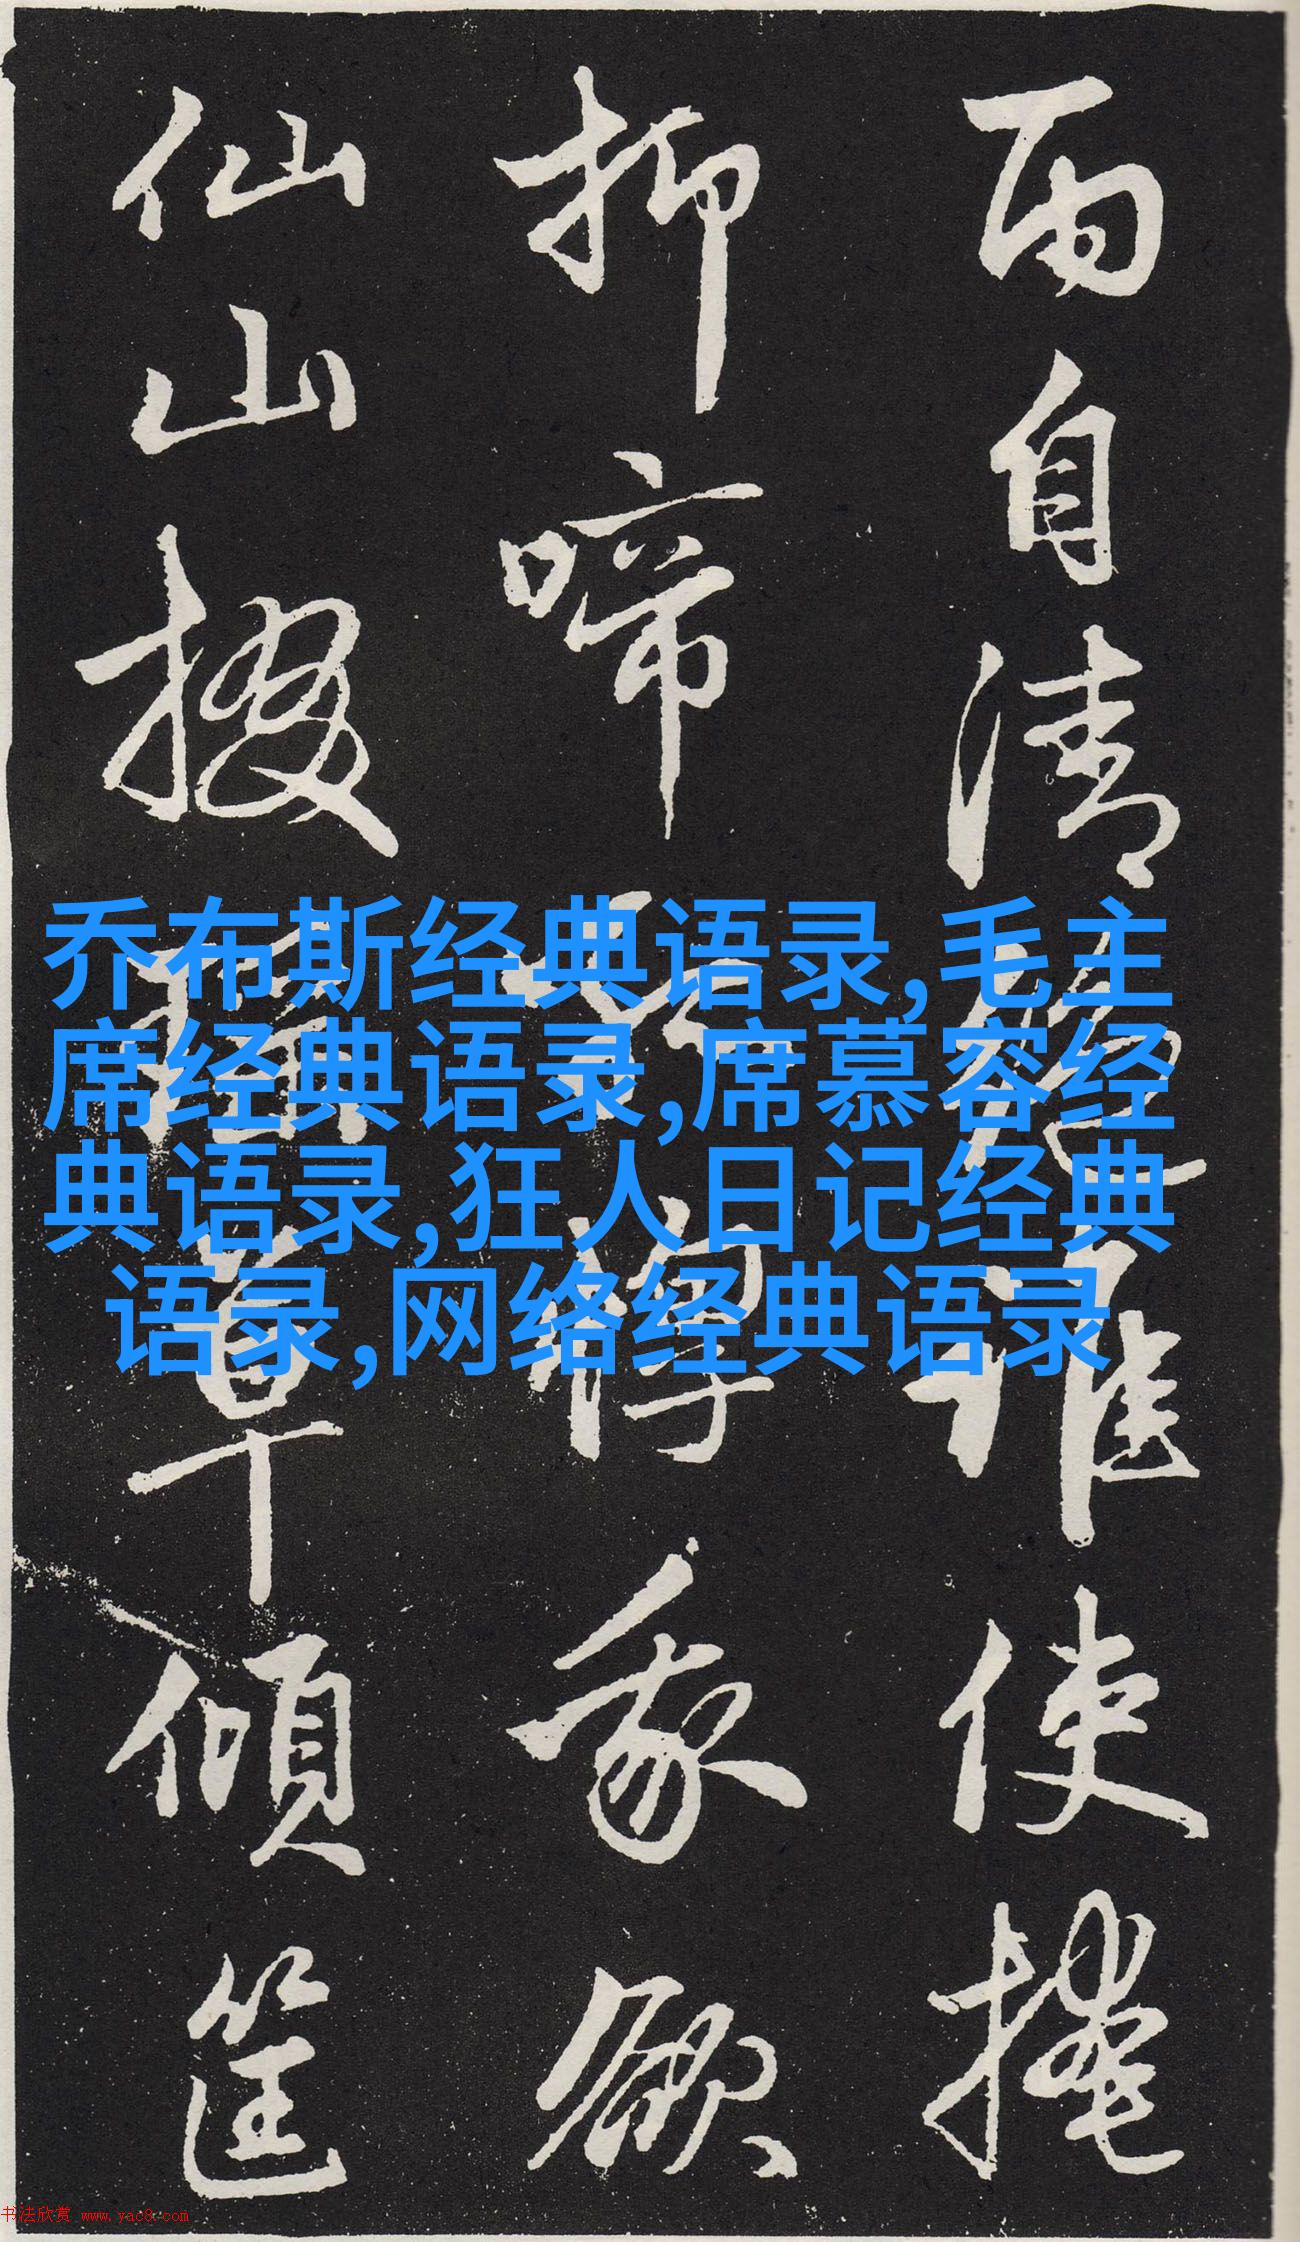 雨自清
誰使掩
抑啼
悍我欲
仙山掇
草傾筐
乔布斯经典语录,毛主
席经典语录,席慕容经
典语录,狂人日记经典
语录,网络经典语录
书法欣赏 www.yac8.com